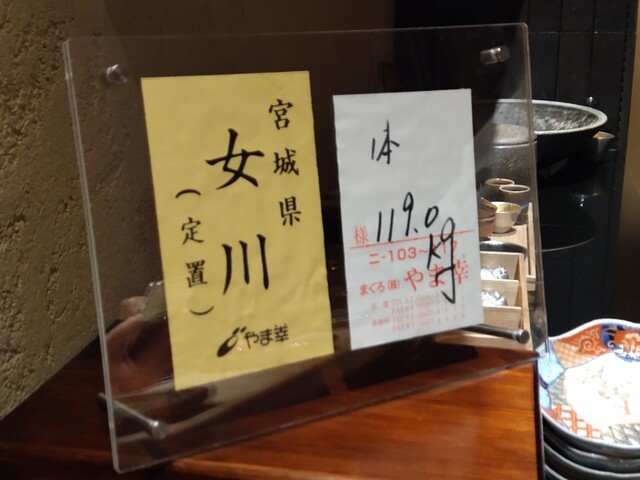 宮城県
女川
（定置）
やま幸
1本
119.0
Kg
様
ニ-103～
まぐろ(株)やま幸